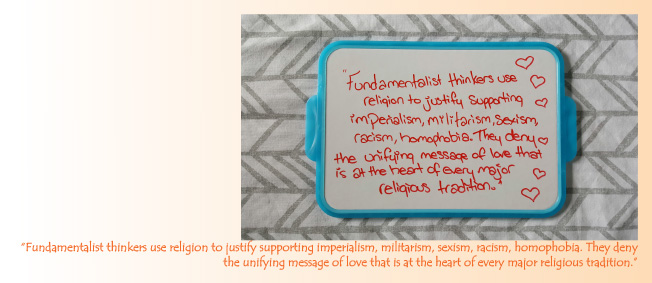 "Fundamentalist thinkers use
religion to justify supporting
imperialism, militarism, sexism,
racism, homophobia. They deny
the unifying message of love that
is at the heart of every major
religious tradition."
"Fundamentalist thinkers use religion to justify supporting imperialism, militarism, sexism, racism, homophobia. They deny
the unifying message of love that is at the heart of every major religious tradition."